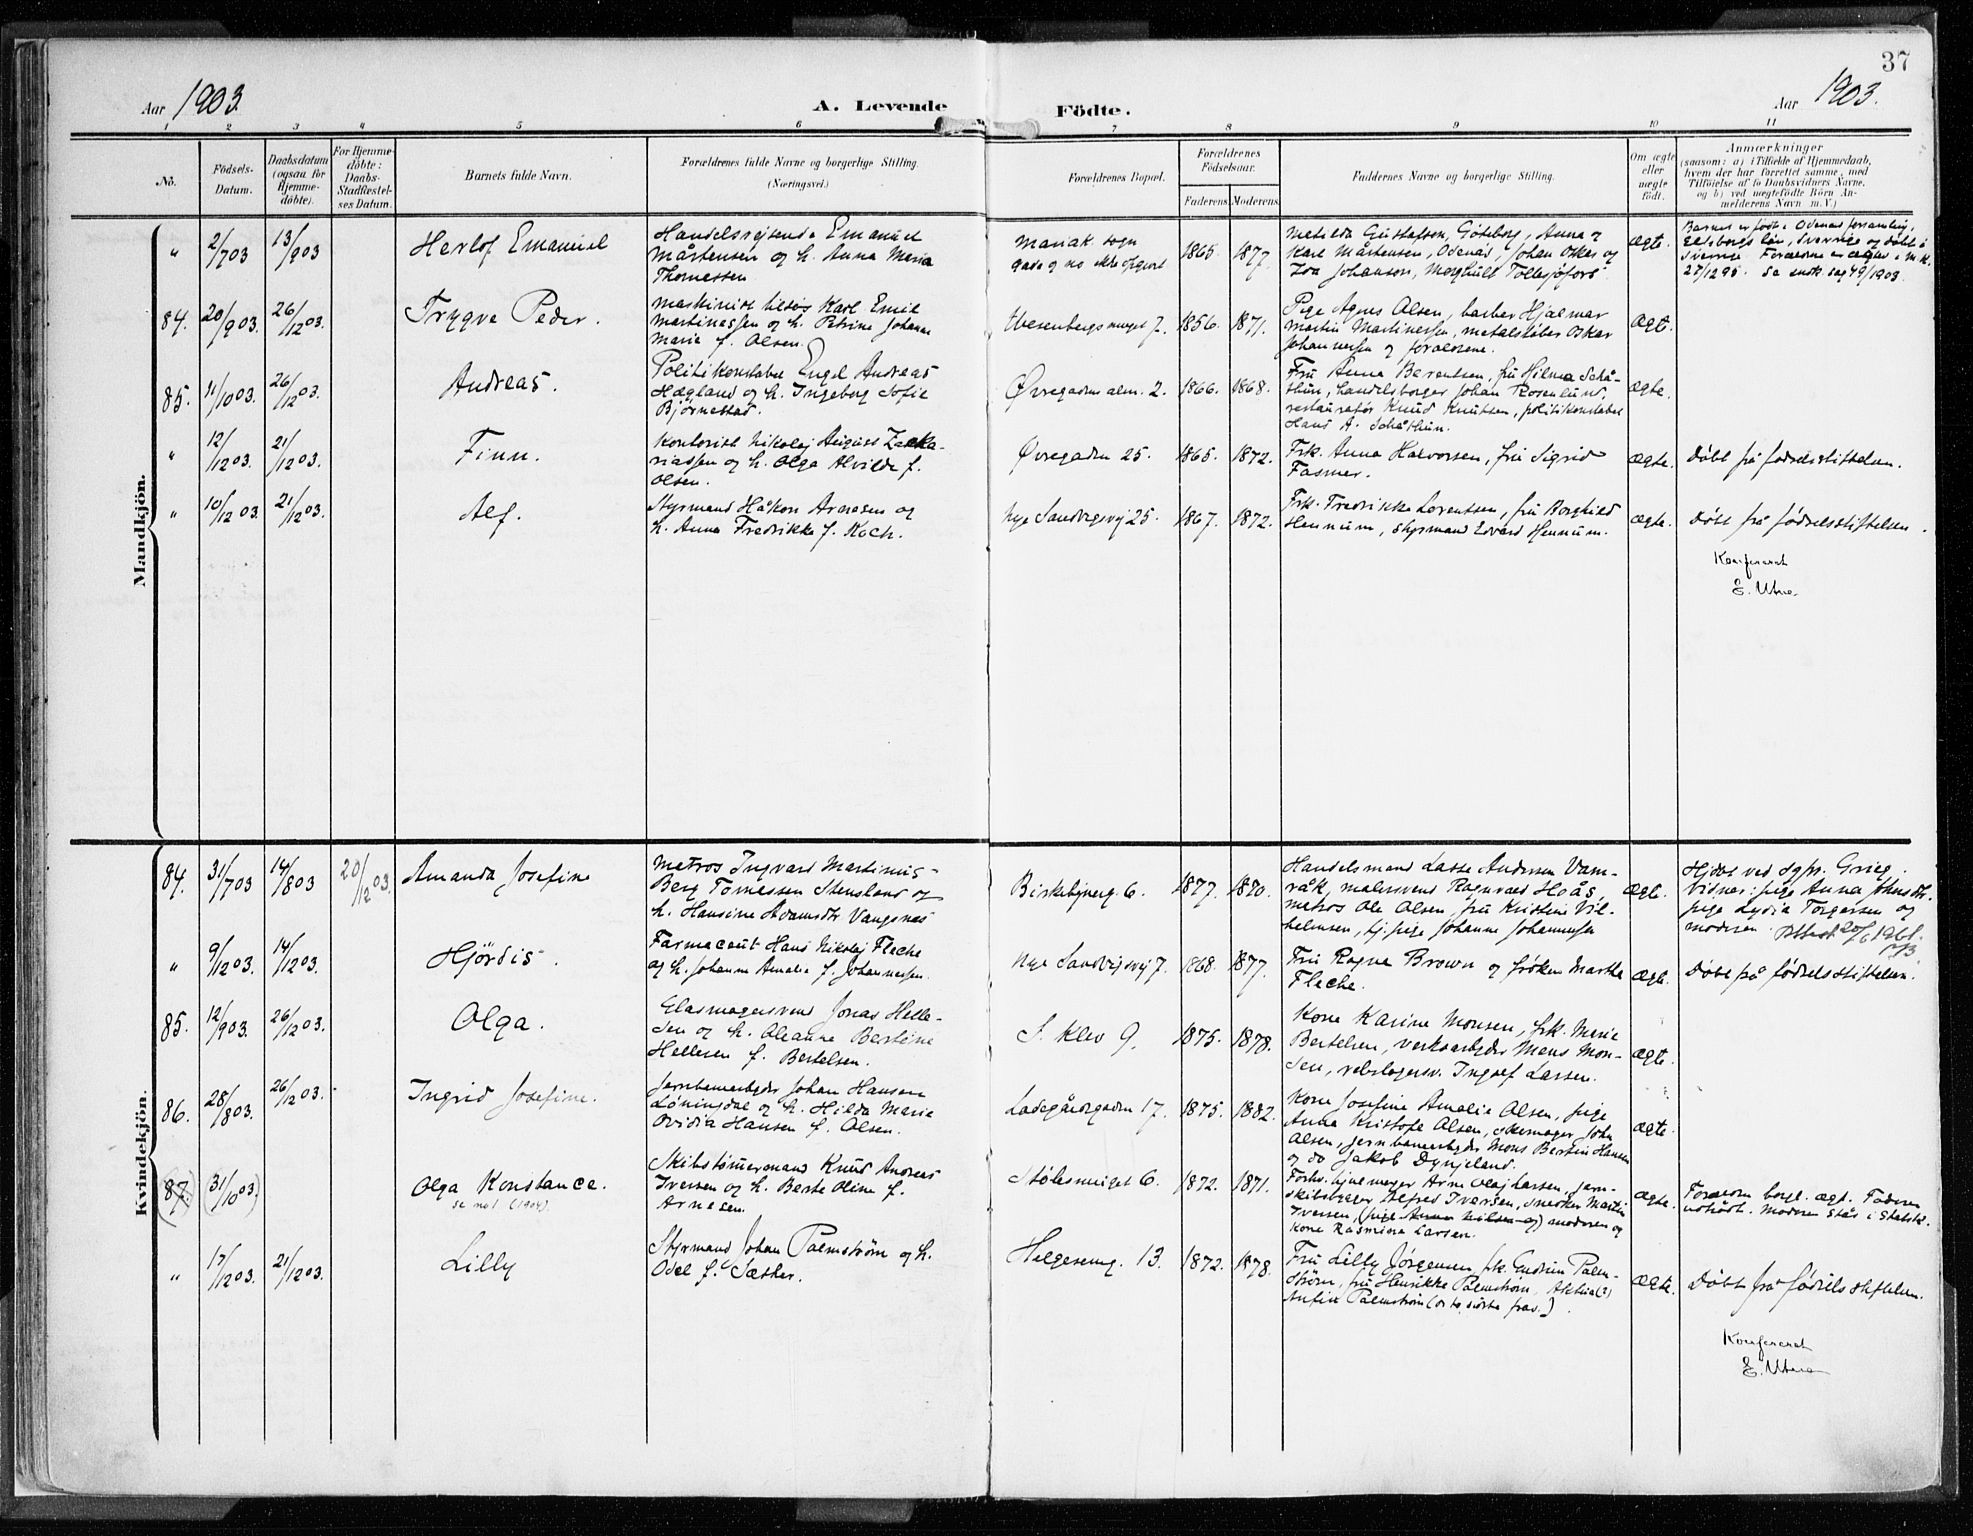 37
Aar 1903.
A. Levende Födte.
Aar 1903.
1 2 3 4 5 6 7 8 9 10 11
No.
Födsels-
Datum.
Daabsdatum
(ogsaa for
Hjemme-
döbte).
For Hjemme-
döbte:
Daabs-
Stadfæstel-
ses Datum.
Barnets fulde Navn.
Forældrenes fulde Navne og borgerlige Stilling.
(Næringsvei.)
Forældrenes Bopæl.
Forældrenes
Födselsaar.
Faderens. Moderens.
Faddernes Navne og borgerlige Stilling.
Om ægte
eller
uægte
födt.
Anmærkninger
(saasom: a) i Tilfælde af Hjemmedaab,
hvem der har forrettet samme, med
Tilföielse af to Daabsvidners Navne,
og b) ved uægtefödte Börn An-
melderens Navn m. V.)
Mandkjön.
" 2/7 03 13/9 03
Herlof Emanuel
Handelsrejsende Emanuel
Mårtensen og h. Anna Maria
Thomessen
Mariak. sogn
gade og no ikke opgivet
1865. 1877.
Matilda Gustafson, Göteborg, Anna og
Karl Mårtensen, Odenäs, Johan Oskar og
Johanson,
ægte.
Barnet er født i Odenäs forsamling,
Elfsborgs län, Sverrige og døbt i
Sverrige. Forældrene
27/12 95. Se 49/1903.
84. 20/9 03. 26/12 03.
Trygve Peder.
Maskinist Karl Emil
Martinessen og h. Petrine Johanne
Marie f. Olsen.
7. 1856. 1871.
Pige Agnes Olsen, barber Hjalmar
Martin Martinessen, metalstøber Oskar
Johannessen og forældrene.
ægte.
85. 11/10 03. 26/12 03.
Andreas.
Politikonstabel Engel Andreas
Hægland og h. Ingeborg Sofie
Bjørnestad.
Øvregaden alm. 2. 1866. 1868.
Fru Anna Berentsen, fru Hilma Schå-
thun, handelsborger Johan Rosenlund,
restauratør Knud Knutsen, politikonstabel
Hans A. Schåthun.
ægte.
" 12/12 03. 21/12 03.
Finn.
Kontorist Nikolaj August Zacka-
riassen og h. Olga Alvilde f.
Olsen.
Øvregaden 25. 1865. 1872.
Frk. Anna Halvorsen, fru Sigrid
Fasmer.
ægte.
Døbt på fødselsstiftelsen.
" 10/12 03. 21/12 03.
Alf.
Styrmand Håkon Arnesen og
h. Anna Fredrikke f. Koch.
Nye Sandvigsvej 25. 1867. 1872.
Frk. Fredrikke Lorentsen, fru Borghild
Hennum, styrmand Edvard Hennum.
ægte.
Døbt på fødselsstiftelsen.
Konfererat
E. Utne
Kvindekjön.
84. 31/7 03 14/8 03 20/12 03.
Amanda Josefine
Matros Ingvard Martinius
Berg Tomessen Stensland og
h. Hansine Adamsdtr Vangsnes
Birkebjnerg. 6. 1877. 1880.
Handelsmand Lasse Andersen Vam-
råk, malersvend Ragnvald Hoås,
matros Ole Olsen, fru Kristine Vil-
helmsen, pige Johanne Johannessen
ægte.
Hjdøbt ved sgpr. Grieg.
Vidner: pige Anna Johnsdtr.
pige Lydia Torgersen og
moderen. Attest 20/6 1961.
" 9/12 03. 14/12 03.
Hjördis.
Farmaceut Hans Nikolaj Fleche
og h. Johanne Amalie f. Johannessen.
Nye Sandvigsvej 7. 1868. 1877.
Fru Ragna Brown og frøken Marthe
Fleche.
ægte.
Døbt på fødselsstiftelsen.
85. 12/9 03. 26/12 03.
Olga.
Glasmagersvend Jonas Helle-
sen og h. Oleanne Bertine
Hellesen f. Bertelsen.
S. Klev 9. 1875. 1878.
Kone Karine Monsen, frk. Marie
Bertelsen, verksarbejder Mons Mon-
sen, rebslagersv. Ingolf Larsen.
ægte.
86. 28/8 03. 26/12 03.
Ingrid Josefine.
Jernbanearbejder Johan Hansen
Løningdal og h. Hilda Marie
Ovidia Hansen f. Olsen.
Ladegårdsgaden 17. 1875. 1882.
Kone Josefine Amalie Olsen, pige
Anna Kristofa Olsen, skomager John
Olsen, jernbanearbejder Mons Bertin Hansen
og do Jakob Dyngeland.
ægte.
(87.) (31/10 03)
Olga Konstance.
se no 1 (1904).
Skibstømmermand Knud Andreas
Iversen og h. Berte Oline f.
Arnesen.
Stølesmuget 6. 1872. 1871.
Arne Olaj Larsen, jern-
skibsbygger Alfred Iversen, snedker Martin
Iversen, (pige Anna Nilsen og) moderen og
kone Rasmine Larsen.
ægte.
Forældrene borgl. ægt. Faderen
udtrådt. Moderen står i Statsk.
" 17/12 03. 21/12 03.
Lilly
Styrmand Johan Palmstrøm og h.
Odel f. Sæther.
Helgesensg. 13. 1872. 1878.
Fru Lilly Jørgensen, frk. Gudrun Palm-
strøm, fru Henrikke Palmstrøm,
Palmstrøm (de to sidste frav.).
ægte.
Døbt på fødselsstiftelsen.
Konfererat
E. Utne